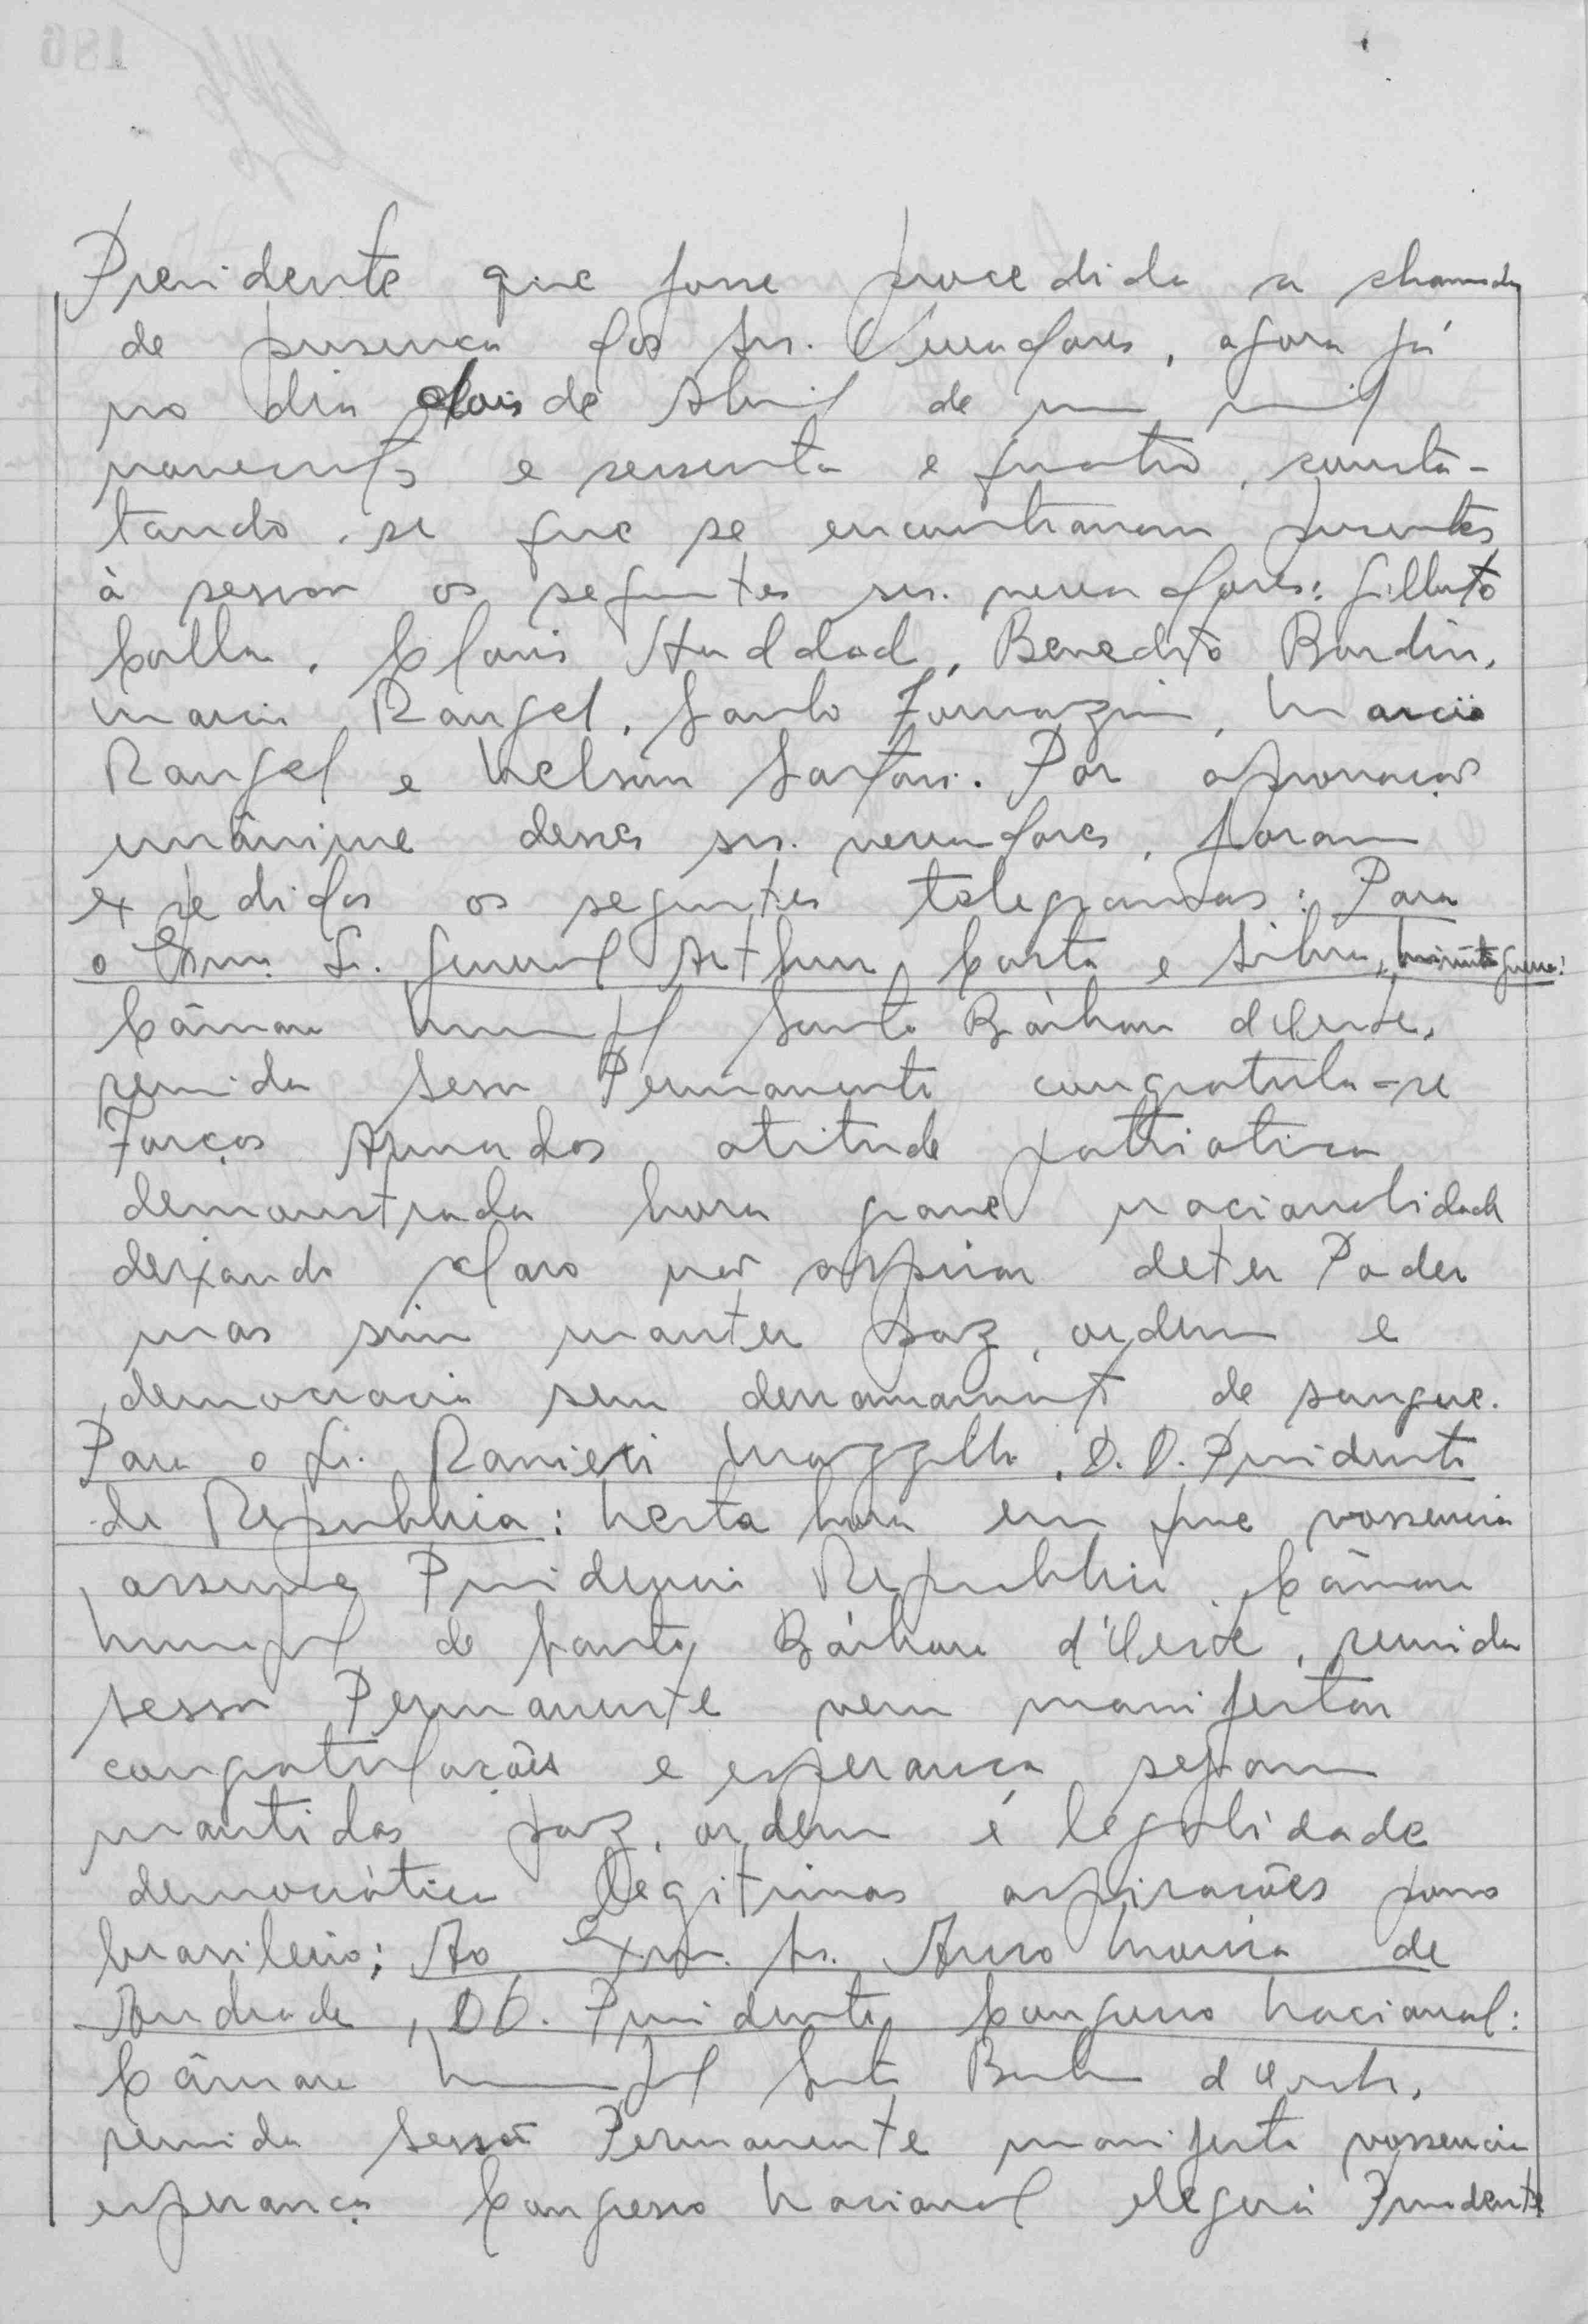 Presidente que fosse procedida a chamada
de presença dos Srs. Vereadores, agora já
no dia dois de Abril de um mil
novecentos e sessenta e quatro, consta-
tando-se que se encontravam presentes
à sessão os seguintes srs. vereadores: Gilberto
Calla, Clovis Haddad, Benedito Bordin,
Marcio Rangel, Santo Fornazin, Marcio
Rangel e Nelson Sartori. Por aprovação
unânime desses srs. vereadores, foram
expedidos os seguintes telegramas: Para
o Exmo. Sr. General Arthur Costa e Silva, Ministro Guerra:
Câmara Municipal Santa Bárbara d'Oeste,
reunida Sessão Permanente congratula-se
Forças Armadas atitude patriotica
demonstrada hora grave nacionalidade
deixando claro não aspirar deter Poder
mas sim manter paz, ordem e
democracia sem derramamento de sangue.
Para o Sr. Ranieri Mazzilli, D.D. Presidente
da Republica: Nesta hora em que vossencia
assume Presidencia Republica, Câmara
Municipal de Santa Bárbara d'Oeste, reunida
Sessão Permanente vem manifestar
congratulações e esperança sejam
mantidas paz, ordem e legalidade
democrática legitimas aspirações povo
brasileiro; Ao Exmo. Sr. Auro Moura de
Andrade, DD. Presidente Congresso Nacional:
Câmara Municipal Santa Barbara d'Oeste,
reunida Sessão Permanente manifesta vossencia
esperança Congresso Nacional elegerá Presidente